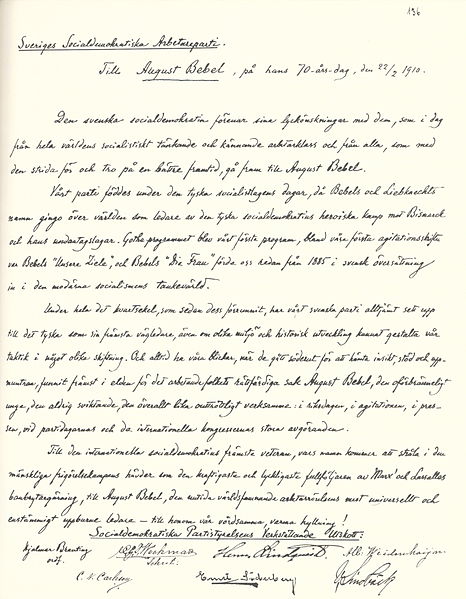 136
Sveriges Socialdemokratiska Arbetareparti.
Till August Bebel, på hans 70-års-dag, den 22/2 1910.
Den svenska socialdemokratin förenar sina lyckönskningar med dem, som i dag
från hela världens socialistiskt tänkande och kännande arbetarklass och från alla, som med
den strida för och tro på en bättre framtid, gå fram till August Bebel.
Vårt parti föddes under den tyska socialistlagens dagar, då Bebels och Liebknechts
namn gingo över världen som ledare av den tyska socialdemokratins heroiska kamp mot Bismarck
och hans undantagslagar. Gothaprogrammet blev vårt första program, bland våra första agitationsskrifter
var Bebels "Unsere Ziele", och Bebels "Die Frau" förde oss redan från 1885 i svensk översättning
in i den moderna socialismens tankevärld.
Under hela det kvartsekel, som sedan dess förrunnit, har vårt svenska parti alltjämt sett upp
till det tyska som sin främsta vägledare, även om olika miljö och historisk utveckling kunnat gestalta vår
taktik i något olika skiftning. Och alltid ha våra blickar, när de gått söderut för att hämta insikt, stöd och upp-
muntran, funnit främst i elden för det arbetande folkets rättfärdiga sak August Bebel, den oförbränneligt
unge, den aldrig sviktande, den överallt lika outtröttligt verksamme: i riksdagen, i agitationen, i pres-
sen, vid partidagarnas och de internationella kongressernas stora avgöranden.
Till den internationella socialdemokratins främste veteran, vars namn kommer att stråla i den
mänskliga frigörelsekampens hävder som den kraftigaste och lyckligaste fullföljaren av Marx' och Lassalles
banbrytargärning, till August Bebel, den nutida världsomspannande arbetarrörelsens mest universellt och
enstämmigt uppburne ledare — till honom vår vördsamma, varma hyllning!
Socialdemokratiska Partistyrelsens Verkställande Utskott:
Hjalmar Branting
ordf.
Wickman
Sekret.
Herm. Lindqvist
C. E.
Emil Söderberg